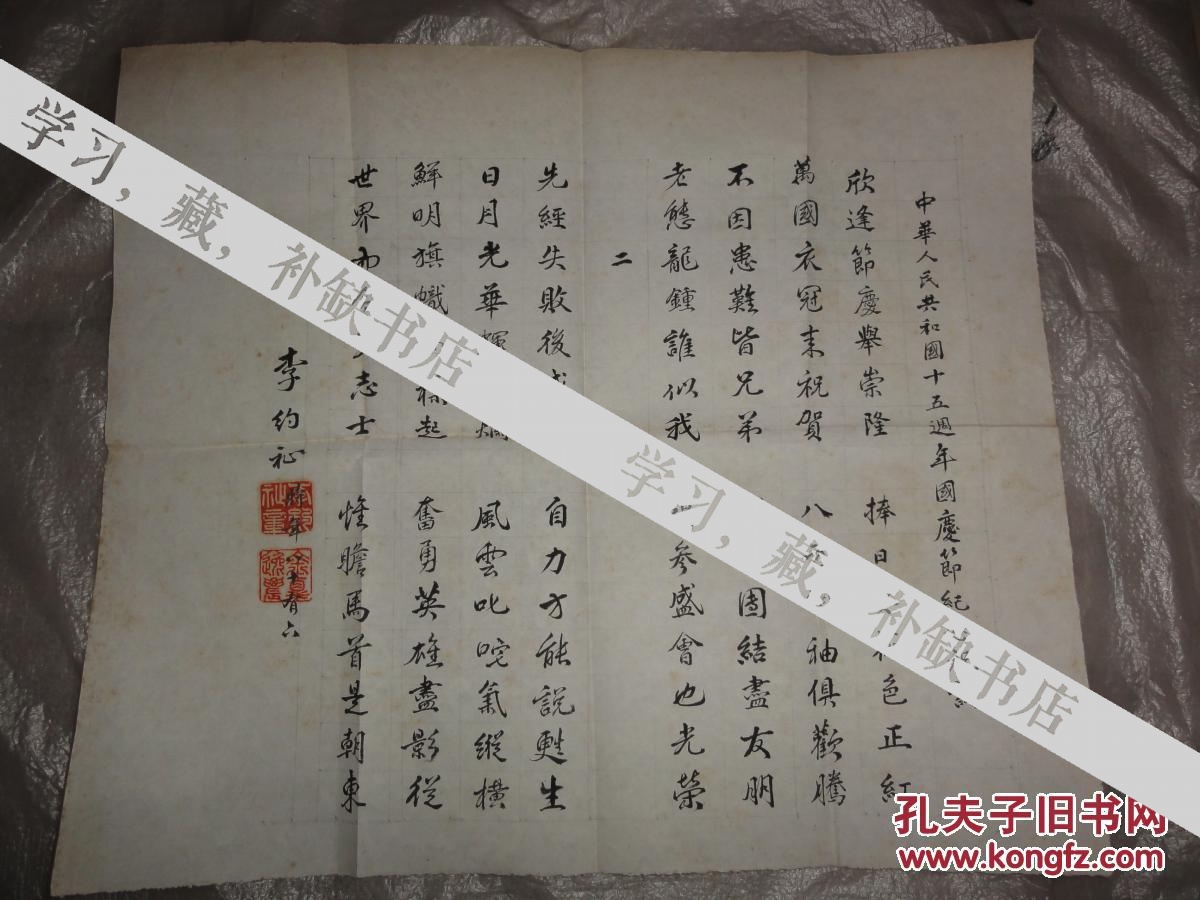 中華人民共和國十五週年國慶節紀
欣逢節慶舉崇隆 捧日 色正紅
萬國衣冠來祝賀 八 袖俱歡騰
不因患難皆兄弟 團結盡友朋
老態龍鍾誰似我 參盛會也光榮
二
先經失敗後 自力方能說甦生
日月光華 風雲叱咤氣縱橫
鮮明旗幟 起 奮勇英雄盡影從
世界 志士 惟瞻馬首是朝東
李約祉
時年八十有六
学习，藏，补缺书店
学习，藏，补缺书店
孔夫子旧书网
www.kongfz.com